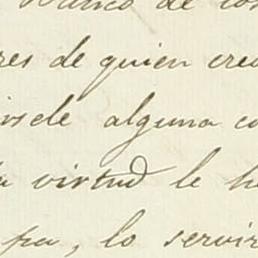 Blanco de los
res de quien cre
irsele alguna co
a virtud le h
pa, lo servir